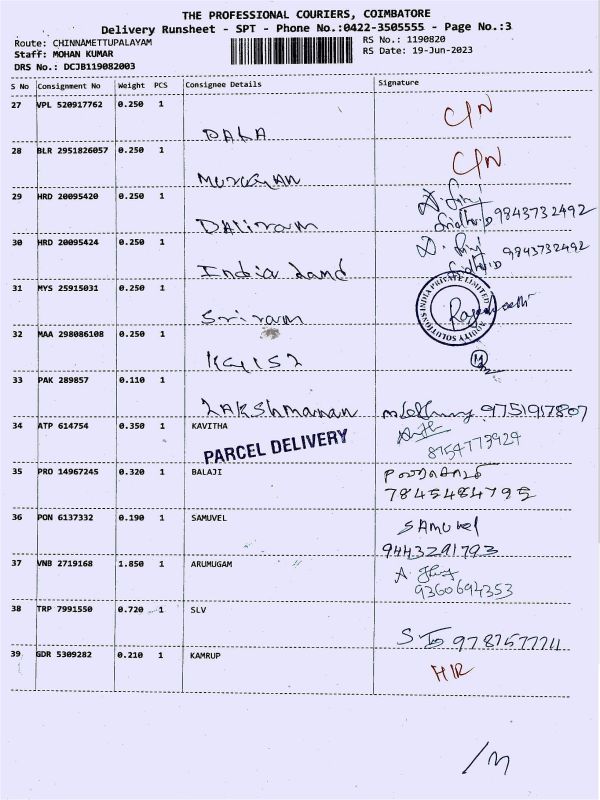 THE PROFESSIONAL COURIERS, COIMBATORE
Delivery Runsheet - SPT - Phone No.:0422-3505555 - Page No.:3
Route: CHINNAMETTUPALAYAM
RS No.: 1190820
Staff: MOHAN KUMAR
RS Date: 19-Jun-2023
DRS No.: DCJB119082003
S No Consignment No Weight PCS Consignee Details Signature
27 VPL 520917762 0.250 1
C/N
DALA
28 BLR 2951826057 0.250 1
C/N
Murugan
29 HRD 20095420 0.250 1
Daliram
9843732492
30 HRD 20095424 0.250 1
India Land
9843732492
31 MYS 25915031 0.250 1
EQUITY SOLUTIONS INDIA PRIVATE LIMITED
Sriram
32 MAA 298086108 0.250 1
33 PAK 289857 0.110 1
Lakshmanan
9751917807
34 ATP 614754 0.350 1 KAVITHA
8754773929
PARCEL DELIVERY
35 PRO 14967245 0.320 1 BALAJI
7845484795
36 PON 6137332 0.190 1 SAMUVEL
SAMUVel
9443291793
37 VNB 2719168 1.850 1 ARUMUGAM
9360694353
38 TRP 7991550 0.720 1 SLV
39 GDR 5309282 0.210 1 KAMRUP
H/R